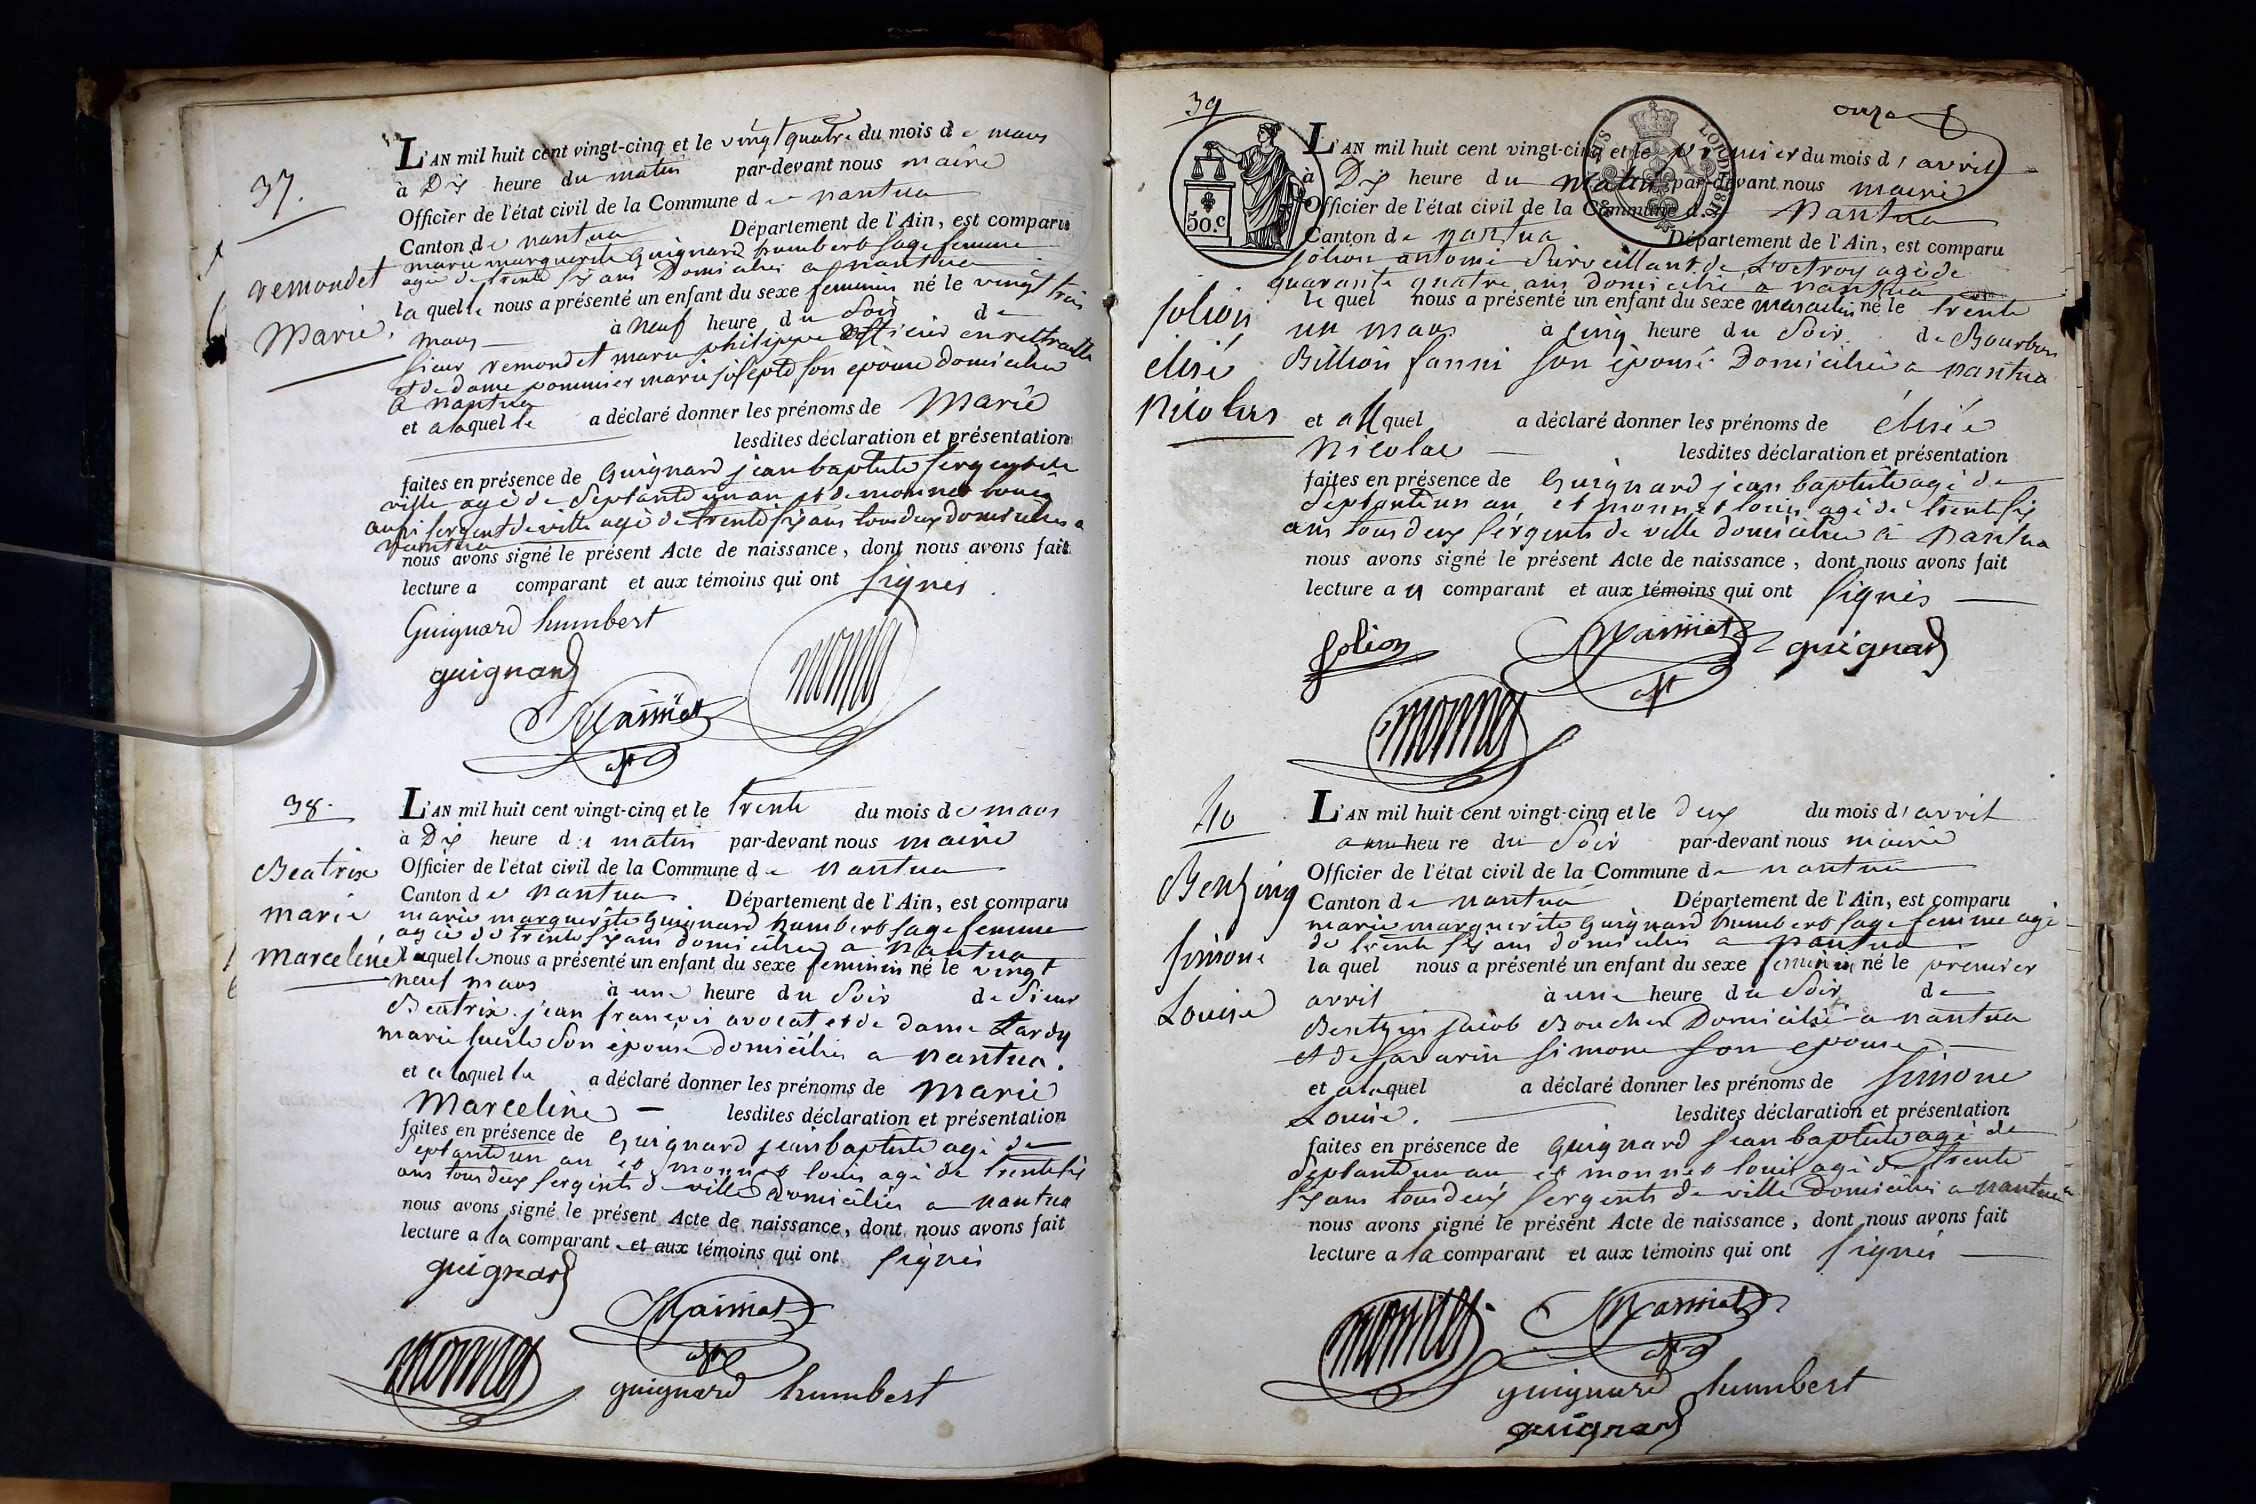 37.
remondet
Marie.
L'AN mil huit cent vingt-cinq et le vingt quatre du mois de mars
à Dix heure du matin par-devant nous maire
Officier de l'état civil de la Commune de nantua
Canton de nantua Département de l'Ain, est comparu
marie marguerite Guignard humbert sage femme
agée de trente six ans Domiciliée a nantua
laquelle nous a présenté un enfant du sexe feminin né le vingt trois
mars à neuf heure du Soir de
Sieur remondet marie philippe officier en rettraitte
et de dame pommier marie josepte son épouse domiciliés
a nantua
et alaquelle a déclaré donner les prénoms de Marie
lesdites déclaration et présentation
faites en présence de Guignard jean baptiste sergent de
ville agé de Septante un an et de monnet louis
aussi sergent de ville agé de trente six ans tous deux domiciliés a
nantua
nous avons signé le présent Acte de naissance, dont nous avons fait
lecture a comparant et aux témoins qui ont signés
Guignard humbert
guignard
monnet
38.
Beatrix
marie
marceline
L'AN mil huit cent vingt-cinq et le trente du mois de mars
à Dix heure du matin par-devant nous maire
Officier de l'état civil de la Commune de nantua
Canton de nantua. Département de l'Ain, est comparu
marie marguerite Guignard humbert sage femme
agée de trente six ans domiciliée a nantua
laquelle nous a présenté un enfant du sexe feminin né le vingt
neuf mars à une heure du Soir de Sieur
Beatrix jean françois avocat et de dame Lardy
marie son épouse domiciliés a nantua.
et alaquelle a déclaré donner les prénoms de Marie
Marceline lesdites déclaration et présentation
faites en présence de Guignard jean baptiste agé de
Septante un an et monnet louis agé de trente six
ans tous deux sergents de ville domiciliés a nantua
nous avons signé le présent Acte de naissance, dont nous avons fait
lecture a la comparant et aux témoins qui ont signés
guignard
monnet
guignard humbert
39
onze
50.c
Jolion
élisé
Nicolas
L'AN mil huit cent vingt-cinq et le premier du mois d'avril
à Dix heure du matin par-devant nous maire
Officier de l'état civil de la Commune de Nantua
Canton de nantua Département de l'Ain, est comparu
Jolion antoine Surveillant de L'octroy agé de
quarante quatre ans domicilié a nantua
lequel nous a présenté un enfant du sexe masculin né le trente
un mars à cinq heure du Soir de Bourbon
Billion fanni son épouse Domiciliée a nantua
et auquel a déclaré donner les prénoms de élisée
Nicolas lesdites déclaration et présentation
faites en présence de Guignard jean baptiste agé de
Septante un an et monnet louis agé de trente six
ans tous deux sergents de ville domiciliés à nantua
nous avons signé le présent Acte de naissance, dont nous avons fait
lecture au comparant et aux témoins qui ont signés
Jolion
guignard
monnet
40
Bentzing
simone
Louise
L'AN mil huit cent vingt-cinq et le deux du mois d'avril
a une heure du Soir par-devant nous maire
Officier de l'état civil de la Commune de nantua
Canton de nantua Département de l'Ain, est comparu
marie marguerite Guignard humbert sage femme agé
de trente six ans domiciliée a nantua
laquel nous a présenté un enfant du sexe feminin né le premier
avril à une heure du Soir de
Bentzin jacob Boucher Domicilié a nantua
et de Savarin simone son epouse
et alaquel a déclaré donner les prénoms de simone
Louise. lesdites déclaration et présentation
faites en présence de Guignard jean baptiste agé de
Septante un an et monnet louis agé de trente
six ans tous deux sergents de ville Domiciliés a nantua
nous avons signé le présent Acte de naissance, dont nous avons fait
lecture a la comparant et aux témoins qui ont signés
monnet
guignard humbert
guignard